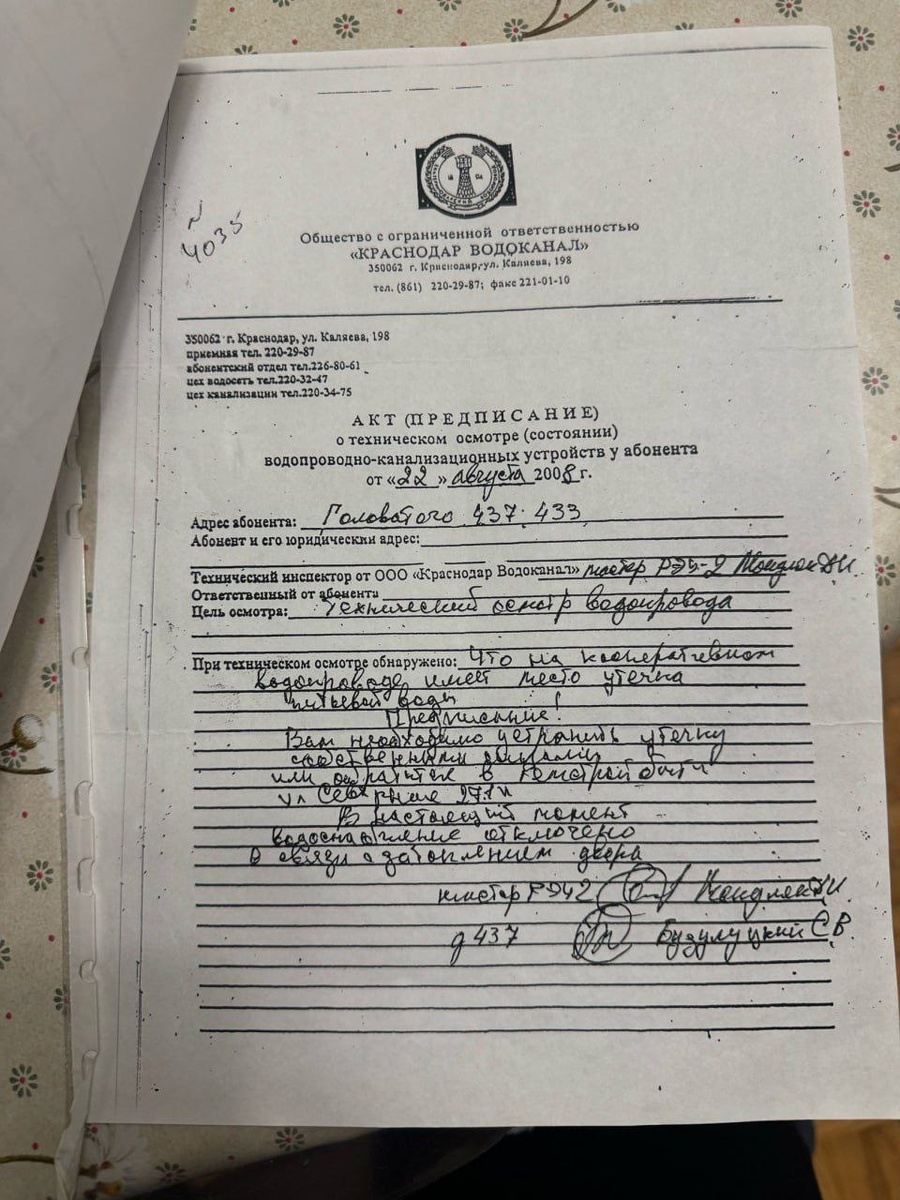 N
4035
Общество с ограниченной ответственностью
«КРАСНОДАР ВОДОКАНАЛ»
350062 г. Краснодар, ул. Каляева, 198
тел. (861) 220-29-87; факс 221-01-10
350062 г. Краснодар, ул. Каляева, 198
приемная тел. 220-29-87
абонентский отдел тел.226-80-61
цех водосеть тел.220-32-47
цех канализации тел.220-34-75
АКТ (ПРЕДПИСАНИЕ)
о техническом осмотре (состоянии)
водопроводно-канализационных устройств у абонента
от «22» августа 2008 г.
Адрес абонента: Головатого 437; 433
Абонент и его юридический адрес:
Технический инспектор от ООО «Краснодар Водоканал» мастер РЭУ-2
Ответственный от абонента
Цель осмотра: Технический осмотр водопровода
При техническом осмотре обнаружено: Что на кооперативном
водопроводе имеет место утечка
питьевой воды
Предписание!
Вам необходимо устранить утечку
собственными силами
или обратится в
ул Северные
В настоящий момент
водоснабжение отключено
в связи с затоплением двора
мастер РЭУ2
д 437 Будулуцкий С В